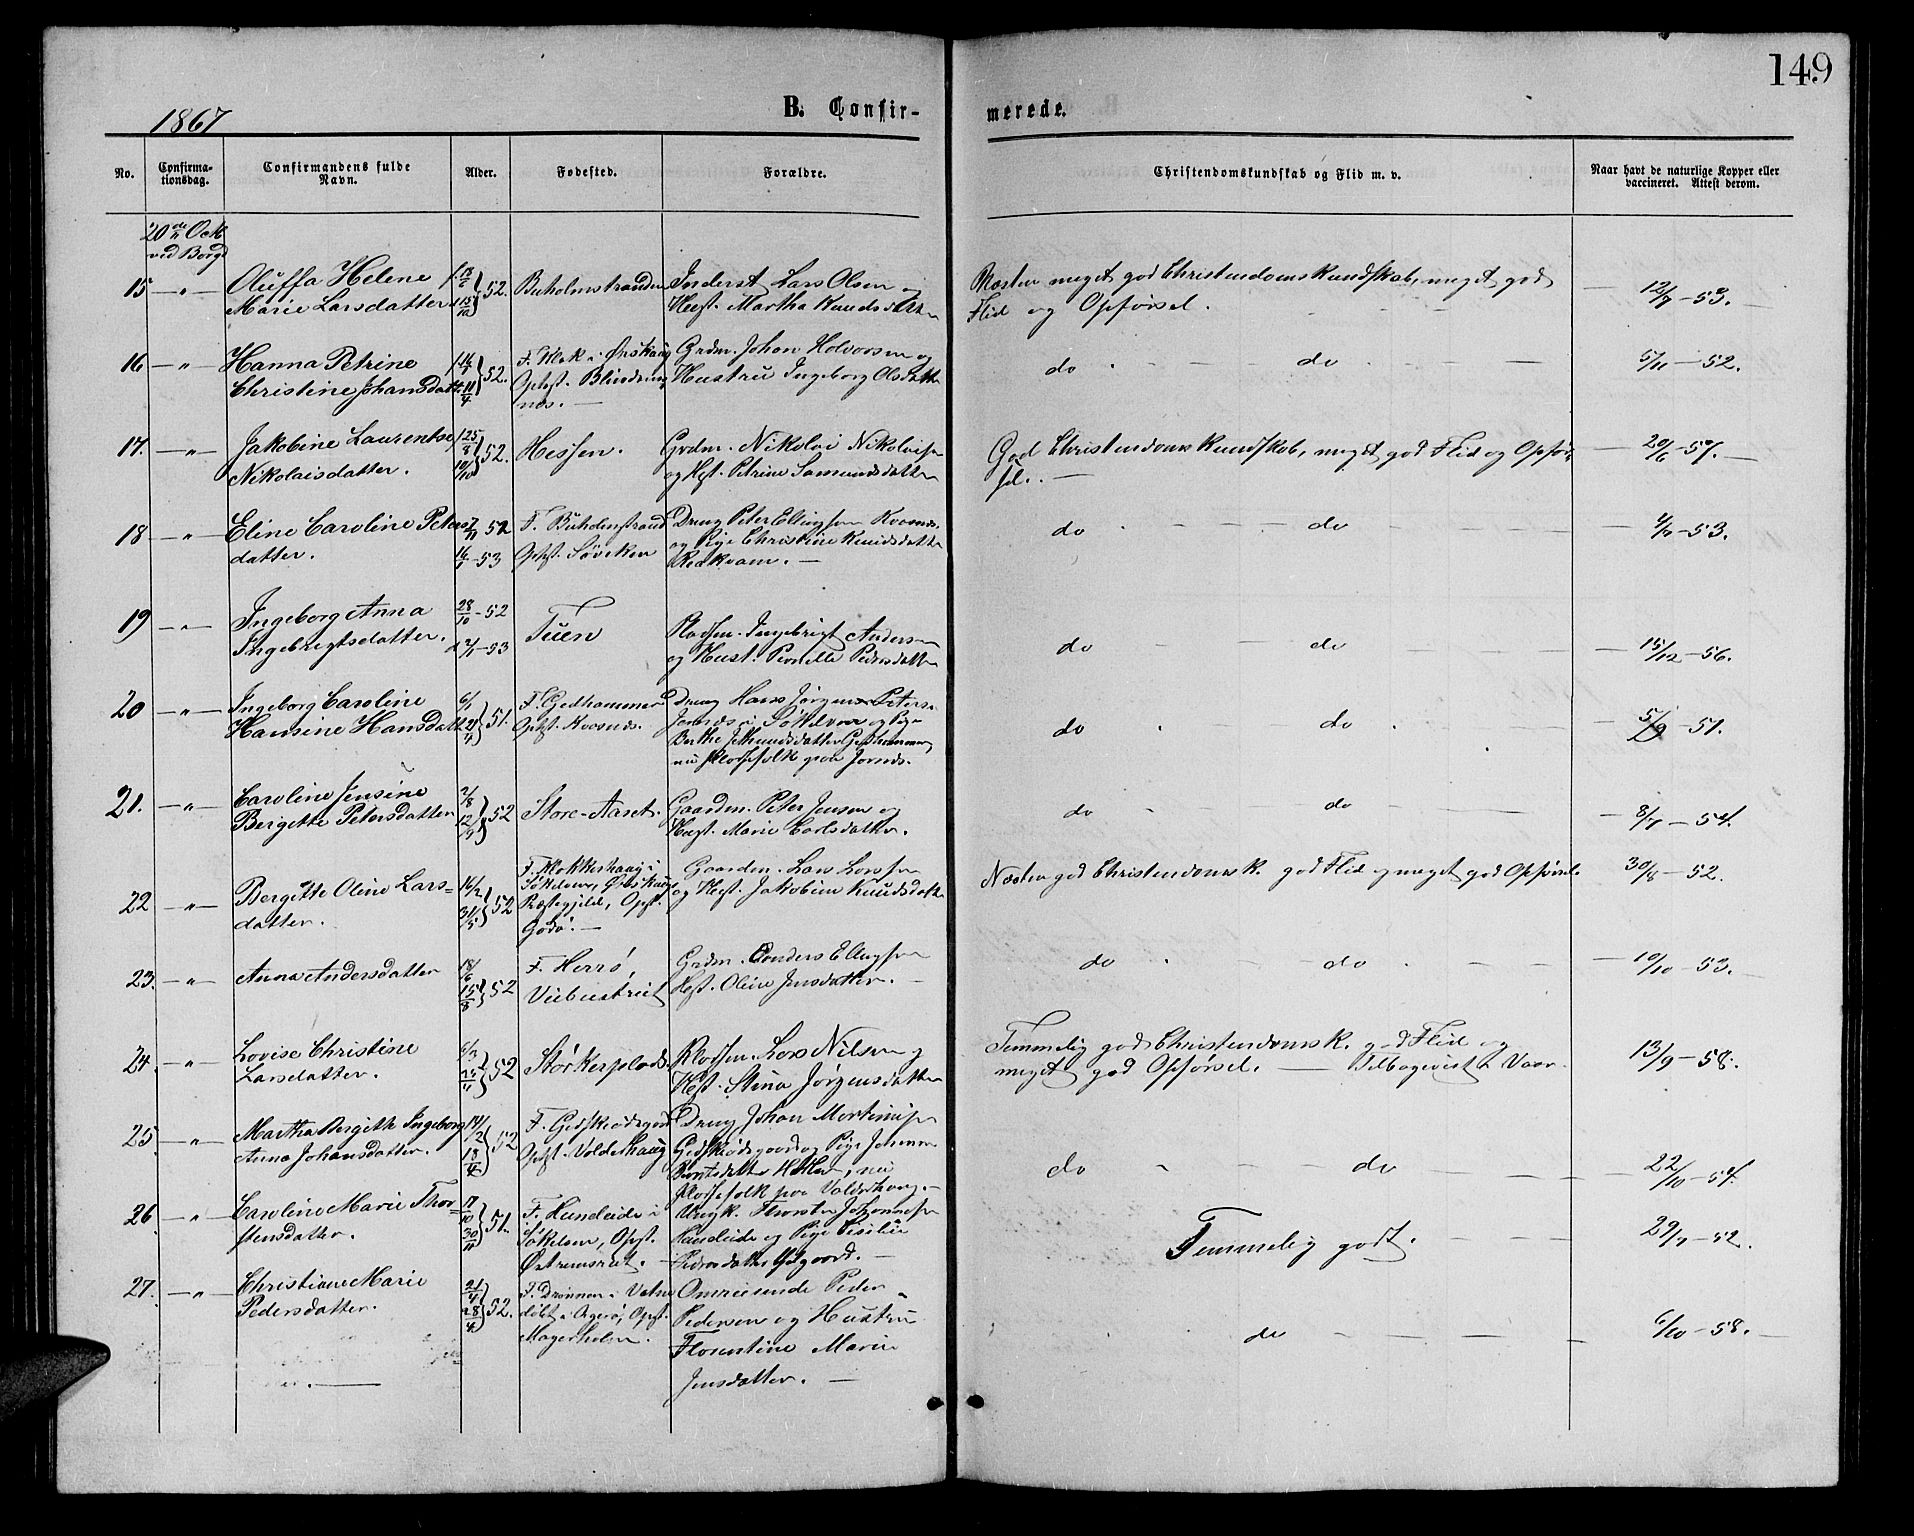 149
1867
B. Confir-
merede.
No.
Confirma-
tionsdag.
Confirmandens fulde
Navn.
Alder.
Fødested.
Forældre.
Christendomskundskab og Flid m. v.
Naar havt de naturlige Kopper eller
vaccineret. Attest derom.
20de Oct
ved Borgd
15 — " — Oluffa Helene
Marie Larsdatter 52. Buholmstranden Inderst Lars Olsen og
Hust. Martha Knudsdatter
Næsten meget god Christendomskundskab, meget god
Flid og Opførsel. 12/7 - 53.
16 — " — Hanna Petrine
Christine Johansdatt. 52. F. Klok i Ørskoug
Opfst. Blindemgnæs. — Grdm. Johan Holvorsen og
Hustru Ingeborg Olsdatter
do — do 5/11 - 52.
17. — " — Jakobine Laurentse
Nikolaisdatter. 52. Hessen. Grdm. Nikolai Nikolaisen
og Hst. Petrine Samundsdatter
God Christendomskundskab, meget god Flid og Opfør-
sel. — 20/6 - 57.
18 — " — Eline Caroline Peters-
datter. 52 - 53 F. Buholmstrand
Opfst. Søviken Dreng Peter Ellingsen
og Pige Christine Knudsdatter
Rødkvam. —
do — do - 53.
19 — " — Ingeborg Anna
Ingebrigtsdatter. 28/10 - 52
- 53 Tuen Pladsm. Ingebrigt Andersen
og Hust. Pernille Pedersdatter
do — do 15/12 - 56.
20 — " — Ingeborg Caroline
Hansine Hansdatt. 51. F. Gjedhammer
Opfst. Dreng Hans Jørgen Petersen
og Pige
Berthe Gjedhammer,
nu Pladsefolk paa
do — do 5/9 - 51.
21. — " — Caroline Jensine
Bergitte Petersdatter 2/8 12/9 52 Store-Aaset. Gaardm. Peter Jensen og
Hust. Marie Carlsdatter.
do — do 8/7 - 54.
22 — " — Bergitte Oline Lars-
datter. 16/2 31/5 52 F. Klokkerhaug i
Søkelven, Ørskoug
Præstegjeld, Opfst.
Godø. — Gaardm. Lars Larsen
og Hust. Jakobine Knudsdatter
Næsten god Christendomsk. god Flid og meget god Opførsel. 30/8 - 52.
23. — " — Anna Andersdatter 18/6 15/8 52 F. Herrø, Grdm. Anders Ellingsen
Hst. Oline Jensdatter. —
do — do 10/10 - 53.
24. — " — Lovise Christine
Larsdatter. 52 Storkerplads. Pladsm. Lars Nilsen og
Hst. Stina Jørgensdatter
Temmelig god Christendomsk. god Flid og
meget god Opførsel. — Tilbagevist i Vaar. 13/9 - 58.
25 — " — Martha Bergitte Ingeborg
Anna Johansdatter. 14/2 18/4 52 F. Gjedskiødsgod
Opfst. Volderhaug Dreng Johan Mortinusen
og Pige
nu
Pladsefolk paa Valderhaug. —
do — do 22/10 - 54.
26 — " — Caroline Marie Thor-
stensdatter. 17/10 30/11 51. F. Hundeide i
Søkelven, Opfst. Ungk. Thorsten Johannesen
Hundeide og Pige
Pedersdatter —
Temmelig godt. 29/7 - 52.
27. — " — Christiane Marie
Pedersdatter. 21/4 28/4 52. F. Opfst.
Magerholm. Omreisende Peder
Pedersen og Hustru
Florentine Marie
Jensdatter. —
do 6/10 - 58.